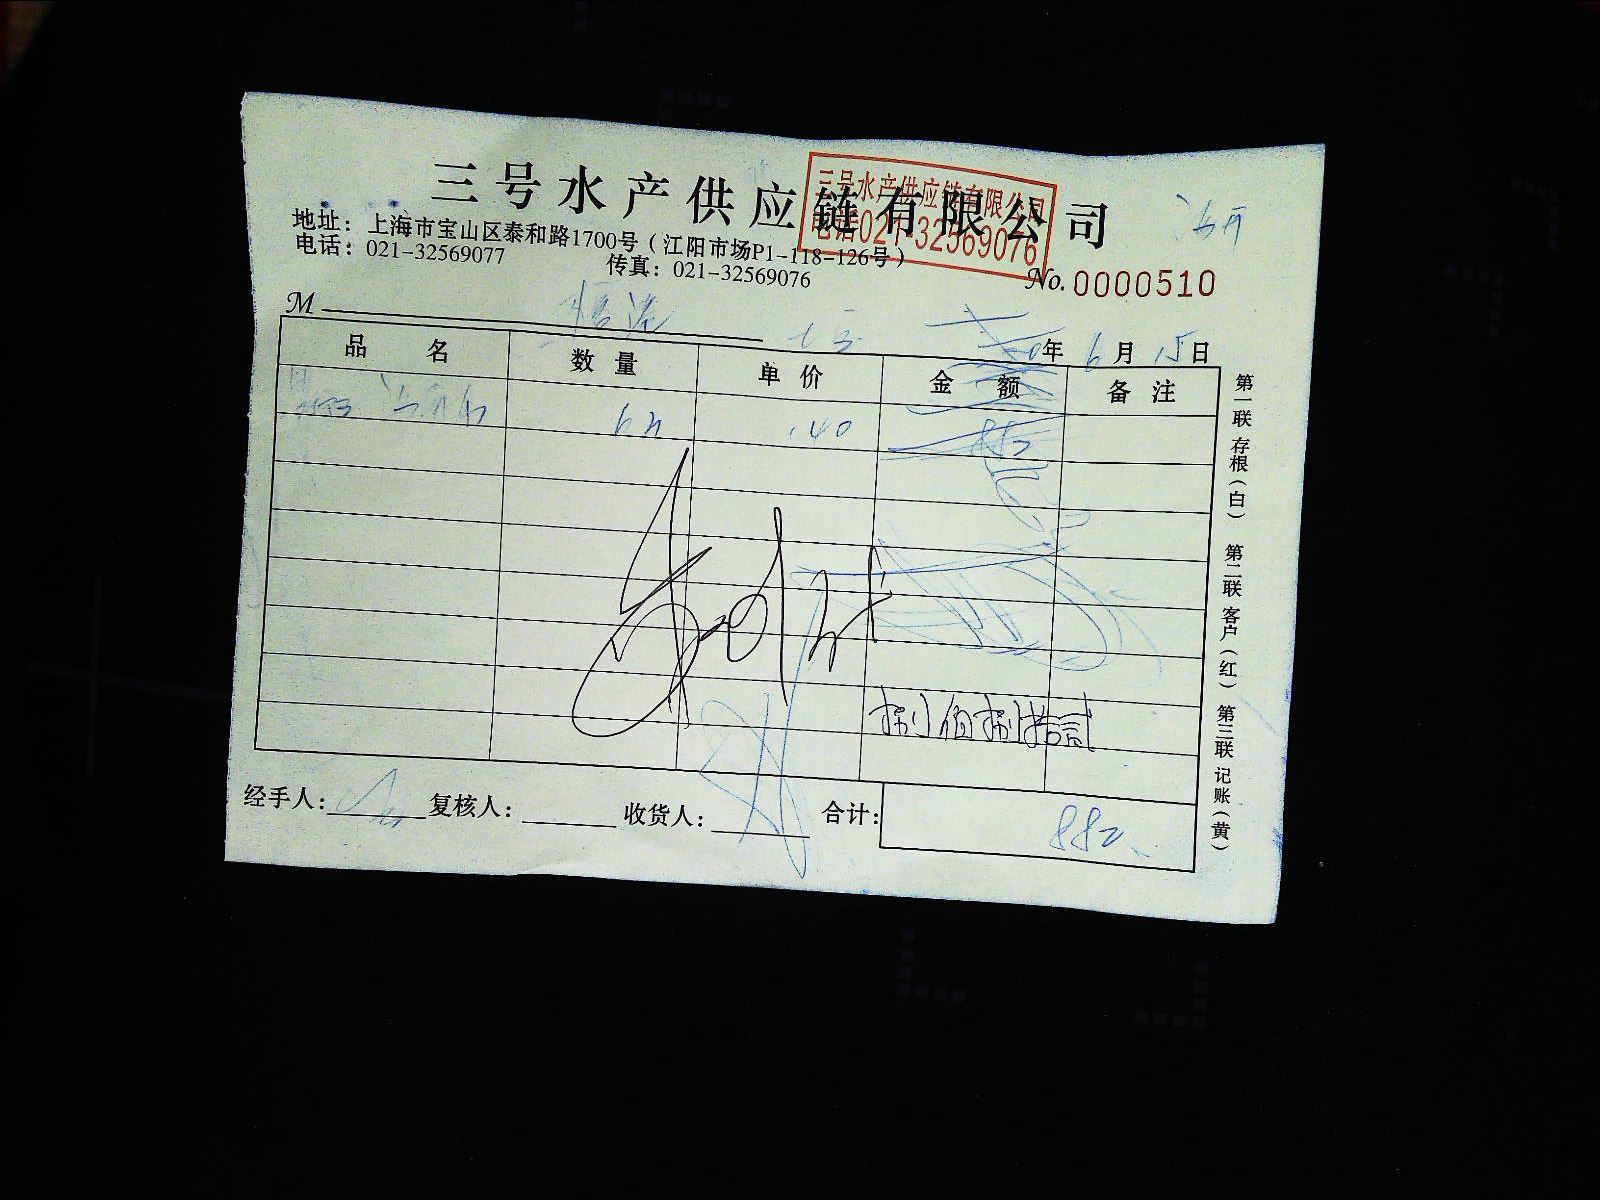 三号水产供应链有限公司
三号水产供应链有限公司
电话021-32569076
地址：上海市宝山区泰和路1700号（江阳市场P1-118-126号）
电话：021-32569077 传真：021-32569076
No.0000510
M
年 6 月 15 日
品名 数量 单价 金额 备注
捌佰捌拾贰
经手人： 复核人： 收货人： 合计：882
第一联 存根（白） 第二联 客户（红） 第三联 记账（黄）